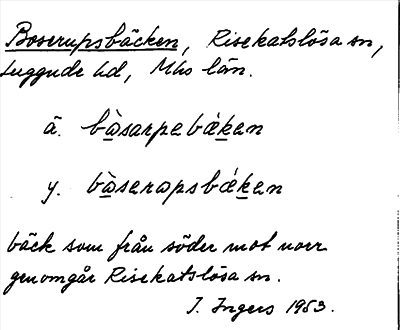 Boserupsbäcken, Risekatslösa sn,
Luggude hd, Mhs län.
ä. bàsarpebǽken
y. bàserapsbǽken
bäck som från söder mot norr
genomgår Risekatslösa sn.
I. Ingers 1953.